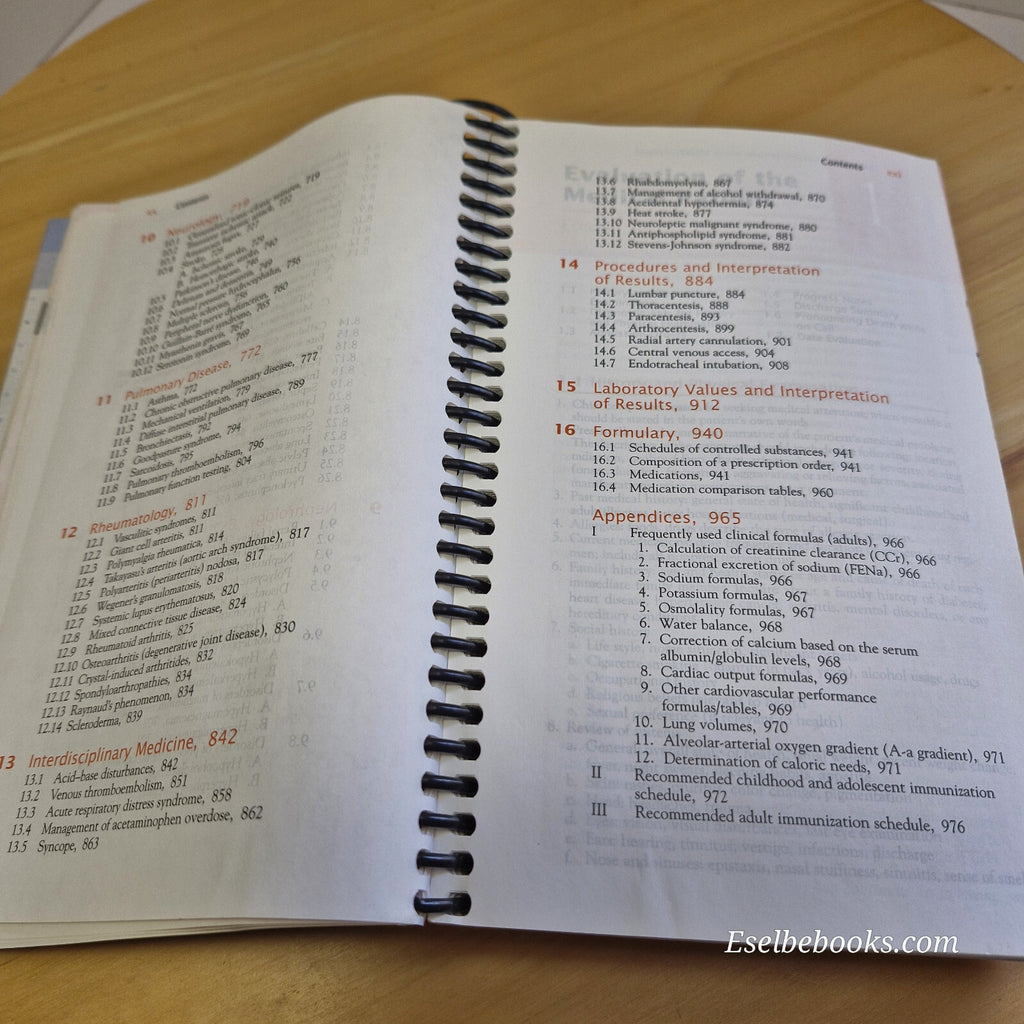 Contents
10 Neurology, 719
10.3 Amaurosis fugax, 727
10.4 Stroke, 728
A. Ischemic stroke, 729
B. Hemorrhagic stroke, 740
10.5 Parkinson's disease, 746
10.6 Delirium and dementia, 749
10.7 Normal pressure hydrocephalus, 756
10.8 Multiple sclerosis, 756
10.9 Peripheral nerve dysfunction, 760
10.10 Guillain-Barré syndrome, 765
10.11 Myasthenia gravis, 767
10.12 Serotonin syndrome, 769
11 Pulmonary Disease, 772
11.1 Asthma, 772
11.2 Chronic obstructive pulmonary disease, 777
11.3 Mechanical ventilation, 779
11.4 Diffuse interstitial pulmonary disease, 789
11.5 Bronchiectasis, 792
11.6 Goodpasture syndrome, 794
11.7 Sarcoidosis, 795
11.8 Pulmonary thromboembolism, 796
11.9 Pulmonary function testing, 804
12 Rheumatology, 811
12.1 Vasculitic syndromes, 811
12.2 Giant cell arteritis, 811
12.3 Polymyalgia rheumatica, 814
12.4 Takayasu's arteritis (aortic arch syndrome), 817
12.5 Polyarteritis (periarteritis) nodosa, 817
12.6 Wegener's granulomatosis, 818
12.7 Systemic lupus erythematosus, 820
12.8 Mixed connective tissue disease, 824
12.9 Rheumatoid arthritis, 825
12.10 Osteoarthritis (degenerative joint disease), 830
12.11 Crystal-induced arthritides, 832
12.12 Spondyloarthropathies, 834
12.13 Raynaud's phenomenon, 834
12.14 Scleroderma, 839
13 Interdisciplinary Medicine, 842
13.1 Acid–base disturbances, 842
13.2 Venous thromboembolism, 851
13.3 Acute respiratory distress syndrome, 858
13.4 Management of acetaminophen overdose, 862
13.5 Syncope, 863
Contents xxi
13.6 Rhabdomyolysis, 867
13.7 Management of alcohol withdrawal, 870
13.8 Accidental hypothermia, 874
13.9 Heat stroke, 877
13.10 Neuroleptic malignant syndrome, 880
13.11 Antiphospholipid syndrome, 881
13.12 Stevens-Johnson syndrome, 882
14 Procedures and Interpretation
of Results, 884
14.1 Lumbar puncture, 884
14.2 Thoracentesis, 888
14.3 Paracentesis, 893
14.4 Arthrocentesis, 899
14.5 Radial artery cannulation, 901
14.6 Central venous access, 904
14.7 Endotracheal intubation, 908
15 Laboratory Values and Interpretation
of Results, 912
16 Formulary, 940
16.1 Schedules of controlled substances, 941
16.2 Composition of a prescription order, 941
16.3 Medications, 941
16.4 Medication comparison tables, 960
Appendices, 965
I Frequently used clinical formulas (adults), 966
1. Calculation of creatinine clearance (CCr), 966
2. Fractional excretion of sodium (FENa), 966
3. Sodium formulas, 966
4. Potassium formulas, 967
5. Osmolality formulas, 967
6. Water balance, 968
7. Correction of calcium based on the serum
albumin/globulin levels, 968
8. Cardiac output formulas, 969
9. Other cardiovascular performance
formulas/tables, 969
10. Lung volumes, 970
11. Alveolar-arterial oxygen gradient (A-a gradient), 971
12. Determination of caloric needs, 971
II Recommended childhood and adolescent immunization
schedule, 972
III Recommended adult immunization schedule, 976
Eselbebooks.com